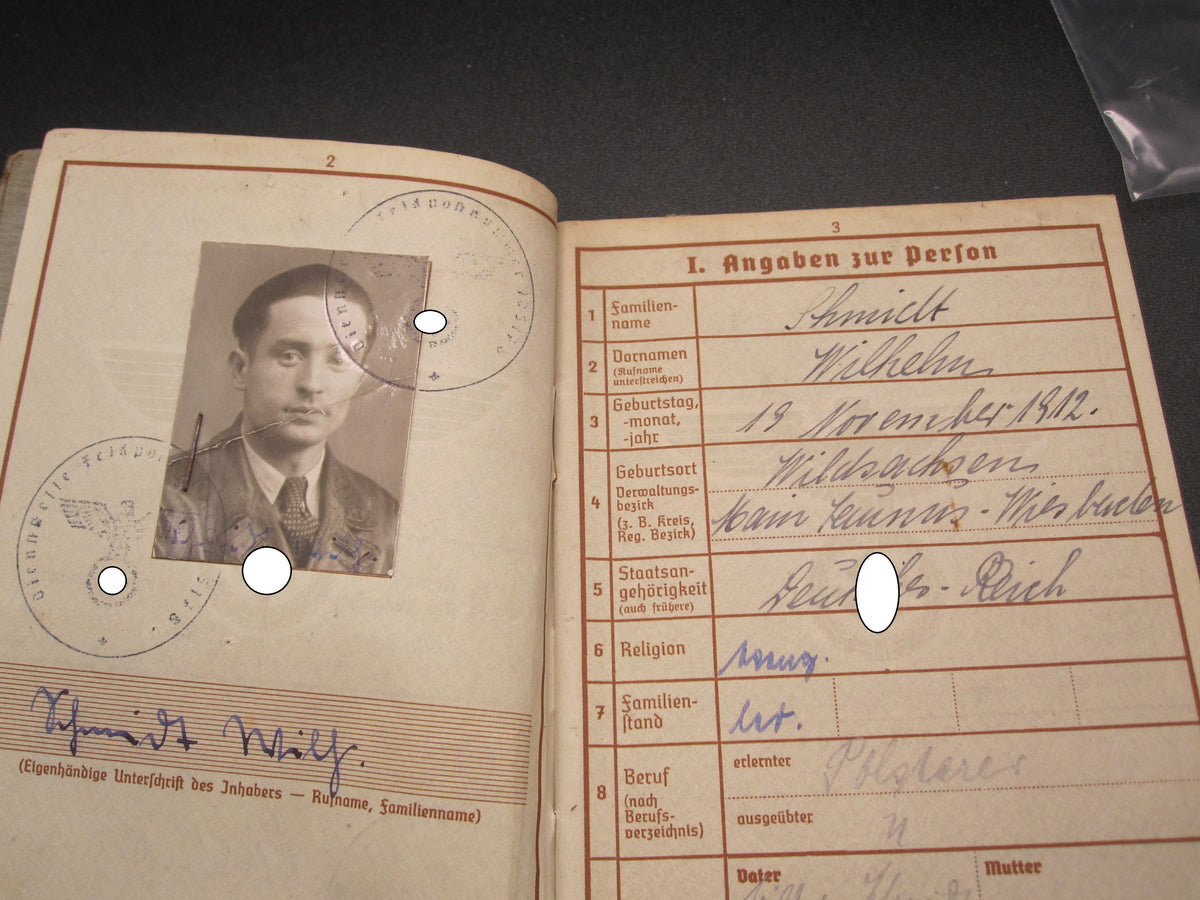 2
Feldpostnummer
Dienststelle Feldpo
Schmidt Wilh.
(Eigenhändige Unterschrift des Inhabers — Rufname, Familienname)
3
I. Angaben zur Person
1 Familien-
name
Schmidt
2 Vornamen
(Rufname
unterstreichen)
Wilhelm
3 Geburtstag,
-monat,
-jahr
19 November 1912.
4 Geburtsort
Verwaltungs-
bezirk
(z. B. Kreis,
Reg. Bezirk)
Wildsachsen
Main Taunus - Wiesbaden
5 Staatsan-
gehörigkeit
(auch frühere)
Reich
6 Religion
evang.
7 Familien-
stand
led.
8 Beruf
(nach
Berufs-
verzeichnis)
erlernter
Polsterer
ausgeübter
"
Vater
Mutter
Schmidt